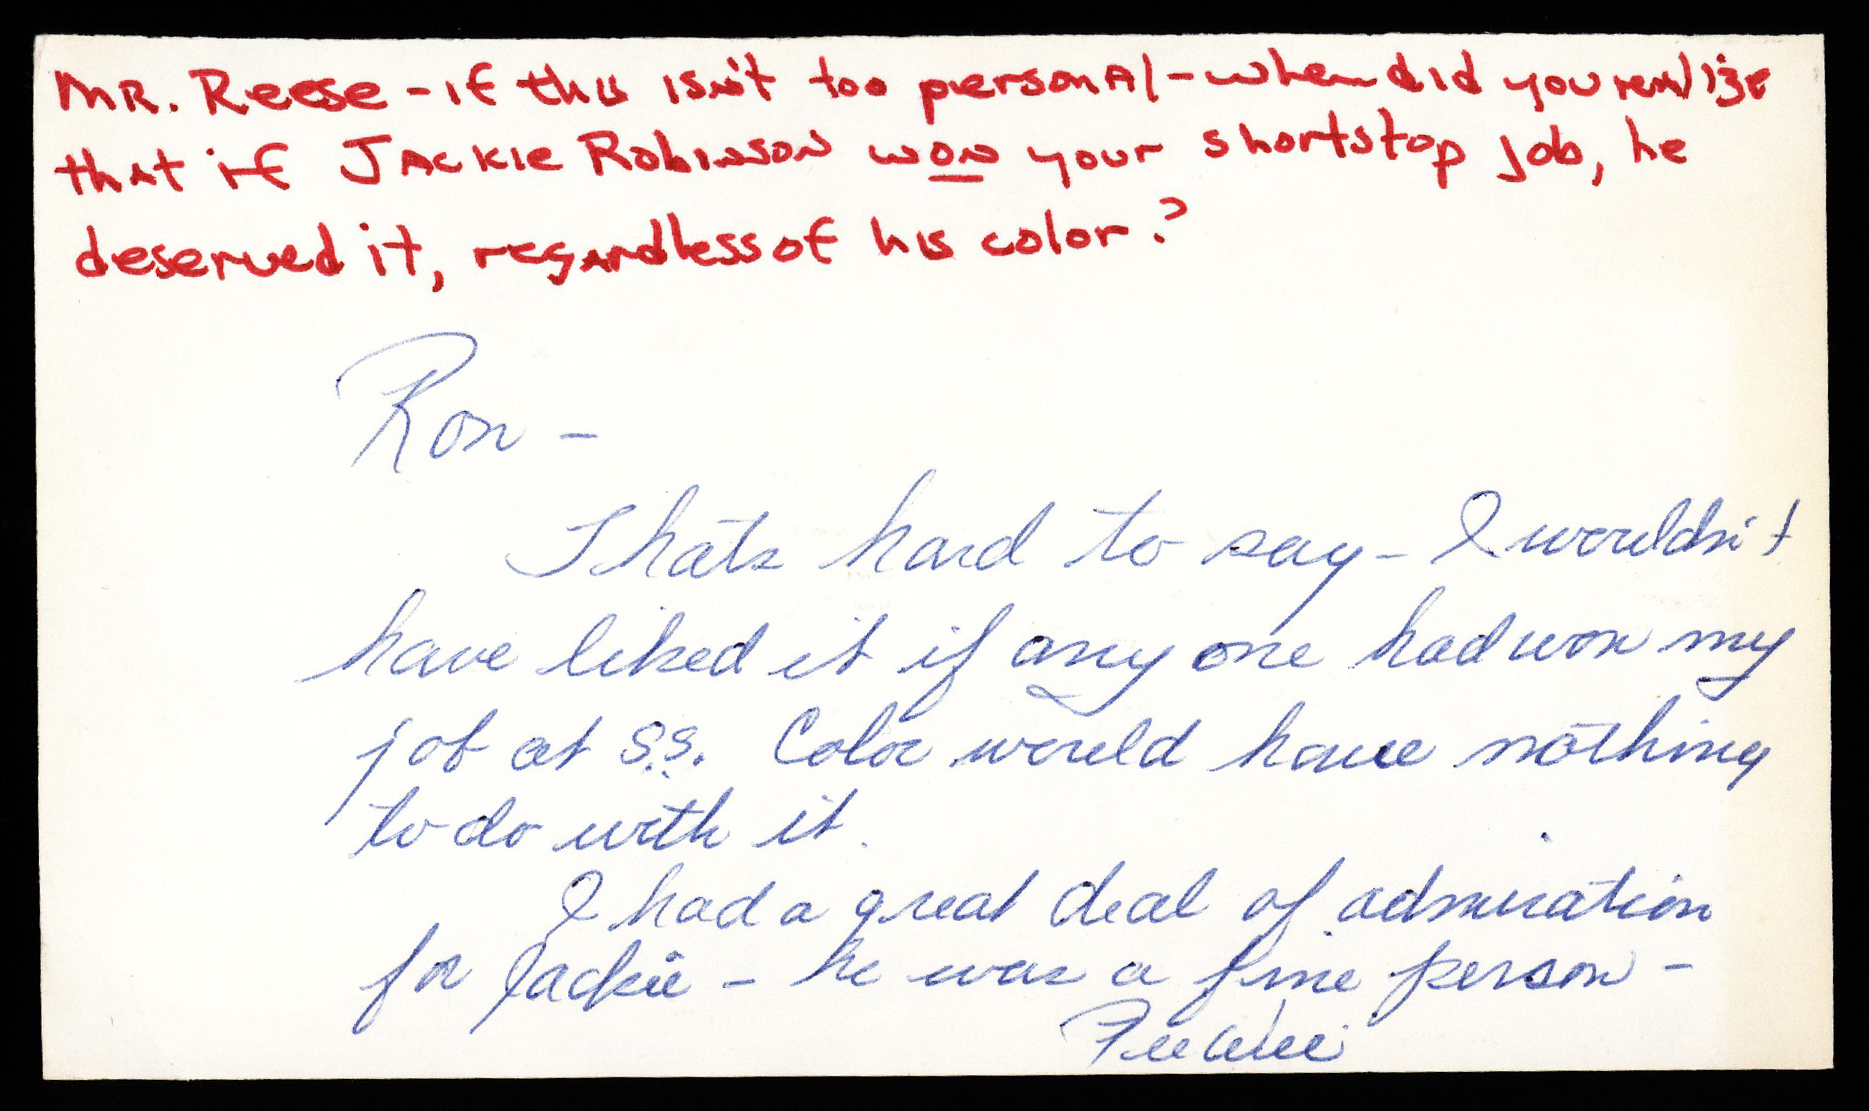 MR. Reese - if this isn't too personal - when did you realize
that if Jackie Robinson won your shortstop job, he
deserved it, regardless of his color?
Ron -
Thats hard to say - I wouldn't
have liked it if any one had won my
job at S.S. Color would have nothing
to do with it.
I had a great deal of admiration
for Jackie - he was a fine person -
PeeWee